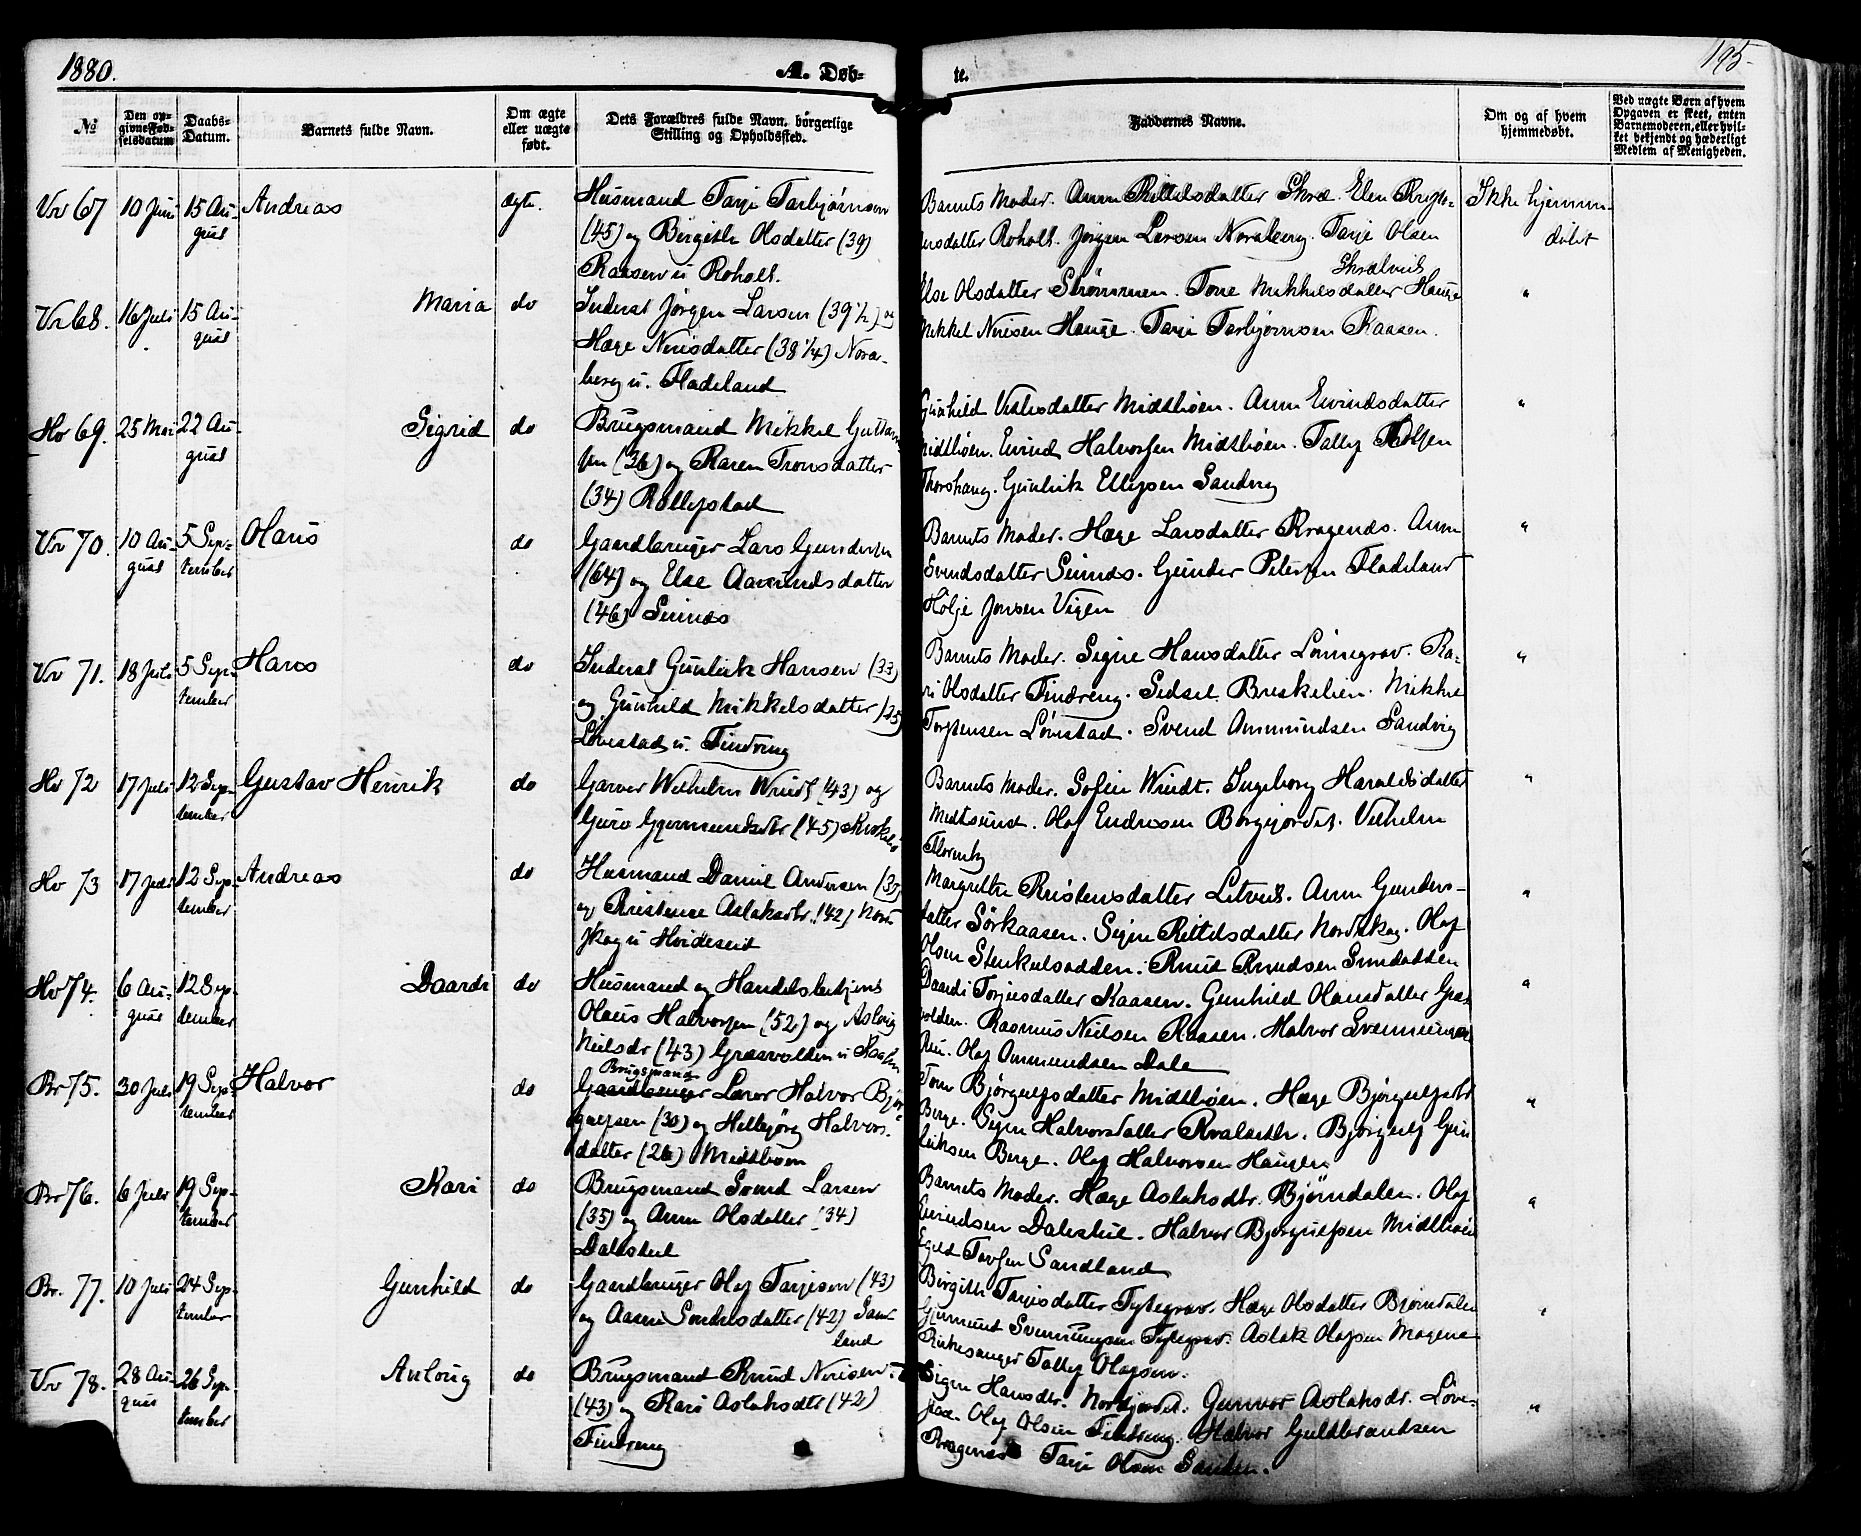 1880.
A. Døb-
te.
195
№
Den op-
givne Fød-
selsdatum
Daabs-
Datum.
Barnets fulde Navn.
Om ægte
eller uægte
født.
Dets Forældres fulde Navn, borgerlige
Stilling og Opholdssted.
Faddernes Navne.
Om og af hvem
hjemmedøbt.
Ved uægte Børn af hvem
Opgaven er skeet, enten
Barnemoderen, eller hvil-
ket bekjendt og hæderligt
Medlem af Menigheden.
Vr 67
10 Juni
15 Au-
gust
Andreas
ægte.
Husmand Tarje Tarbjørnsen
(45) og Birgithe Olsdatter (39)
Raasen u Roholt.
Barnets Moder. Anne Kittelsdatter Skræ. Elen
datter Roholt. Jørgen Larsen Noraberg. Tarje Olsen
Skrælvik
Ikke hjemme-
døbt
Vr 68.
16 Juli
15 Au-
gust
Maria
do
Inderst Jørgen Larsen (39½) og
Hæge Nirisdatter (38¼) Nora-
berg u. Fladeland
Else Olsdatter Strømmen. Tone Mikkelsdatter Hauge
Mikkel Nirisen Hauge. Tarje Tarbjørnsen Raasen.
"
Hv 69.
25 Mai
22 Au-
gust
Sigrid
do
Brugsmand Mikkel
sen (36) og Karen Tronsdatter
(34) Rollefstad
Gunhild datter Midtbøen. Anne Eivindsdatter
Midtbøen. Eivind Halvorsen Midtbøen. Tallef
Thorshaug. Gunleik Ellefsen Sandvig
"
Vr 70.
10 Au-
gust
5 Sep-
tember
Olaus
do
Gaardbruger Lars Gundersen
(64) og Else Aamundsdatter
(46) Sunds
Barnets Moder. Hæge Larsdatter Kragenæs. Anne
Svendsdatter Sunds. Gunder Petersen Fladeland
Hølje Jonsen Vigen
"
Vr 71.
18 Juli
5 Sep-
tember
Hans
do
Inderst Gunleik Hansen (33)
og Gunhild Mikkelsdatter (35)
Løvestad u. Findreng
Barnets Moder. Signe Hansdatter Lønnegrav. Ka-
ri Olsdatter Findreng. Sidsel Breskelien. Mikkel
Torstensen Løvestad. Svend Ommundsen Sandvig
"
Hv 72
17 Juli
12 Sep-
tember
Gustav Henrik
do
Garver Wilhelm Windt (43) og
Guro Gjermundsdtr (45)
Barnets Moder. Sofie Windt. Ingeborg Haraldsdatter
Midtsund. Olaf Endresen Borgejordet. Vilhelm
"
Hv 73
17 Juli
12 Sep-
tember
Andreas
do
Husmand Daniel Andersen (37)
og Kristense Aslaksdtr. (42) Nord-
skog u Hvideseid
Margrethe Kristensdatter Anne Gunders-
datter Sørkaasen. Signe Kittilsdatter Nordskog. Olaf
Olsen Knud Knudsen
"
Hv 74.
6 Au-
gust
12 Sep-
tember
Daardi
do
Husmand og Handelsbetjent
Olaus Halvorsen (52) og Aslaug
Nielsdr (43) Græsvolden u Kaasen
Daardi Torjusdatter Kaasen. Gunhild Olausdatter Græs-
volden. Rasmus Nielsen Kaasen. Halvor Svenningsen
Olaf Ommundsen Dale
"
Br 75.
30 Juli
19 Sep-
tember
Halvor
do
Brugsmand
Gaardbruger Lærer Halvor Bjør-
gulfsen (30) og Helbjørg Halvors-
datter (26) Midtbøen
Tone Bjørgulfsdatter Midtbøen. Hæge Bjørgulfsdtr
Berge. Signe Halvorsdatter Bjørgulf Gun-
leiksen Berge. Olaf Halvorsen Haugen
"
Br 76.
6 Juli
19 Sep-
tember
Kari
do
Brugsmand Svend Larsen
(35) og Anne Olsdatter (34)
Dalskeel
Barnets Moder. Hæge Aslaksdtr. Bjørndalen. Olaf
Eivindsen Daleskeel. Halvor Bjørgulfsen Midtbøen
Sandland
"
Br. 77.
10 Juli
24 Sep-
tember
Gunhild
do
Gaardbruger Olaf Tarjesen (43)
og Aasne datter (42) Sand-
land
Birgithe Tarjesdatter Tyttegrav. Hæge Olsdatter Bjørndalen
Gjermund Svenningsen Tyttegrav. Aslak Olafsen Mogene
Kirkesanger Tallef Olafsen.
"
Vr 78.
28 Au-
gust
26 Sep-
tember
Anlaug
do
Brugsmand Knud Nirisen
(43) og Kari Aslaksdtr (42)
Findreng
Signe Hansdtr. Nordjordet. Gunvor Aslaksdr. Løve-
stad. Olaf Olsen Findreng. Halvor Guldbrandsen
Kragenæs Tarje Olsen Sanden.
"